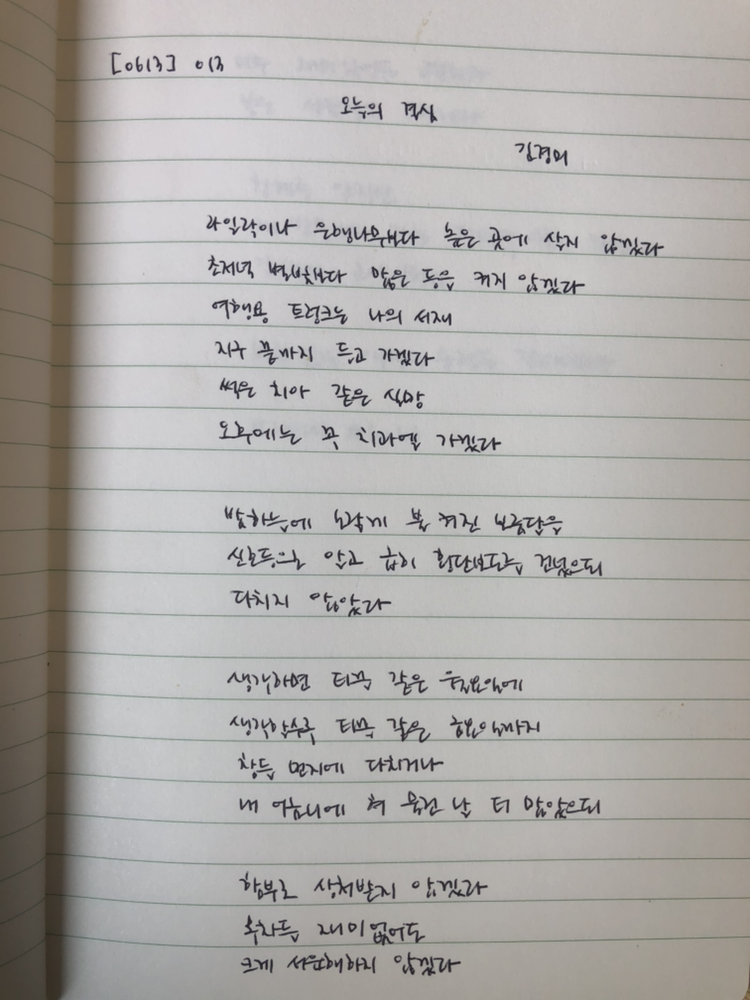 [0613] 013
오늘의 결심
김경미
라일락이나 은행나무보다 높은 곳에 살지 않겠다
초저녁 별빛보다 많은 등을 켜지 않겠다
여행용 트렁크는 나의 서재
지구 끝까지 들고 가겠다
썩은 치아 같은 실망
오후에는 꼭 치과엘 가겠다
밤하늘에 노랗게 불 켜진 보름달을
신호등으로 알고 급히 횡단보도를 건넜으되
다치지 않았다
생각하면 티끌 같은 월요일에
생각할수록 티끌 같은 금요일까지
창틀 먼지에 다치거나
내 어금니에 혀 물린 날 더 많았으되
함부로 상처받지 않겠다
목차들 재미없어도
크게 서운해하지 않겠다